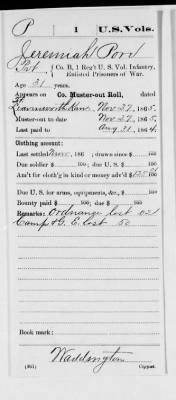 P | 1 | U.S. Vols.
Jeremiah Poor
Pvt, Co. B, 1 Reg't U. S. Vol. Infantry,
Enlisted Prisoners of War.
Age 21 years.
Appears on Co. Muster-out Roll, dated
Ft Leavenworth Kan Nov 27, 1865.
Muster-out to date Nov 27, 1865.
Last paid to Aug 31, 1864.
Clothing account:
Last settled , 186 ; drawn since $ 100
Due soldier $ 100; due U. S. $ 100
Am't for cloth'g in kind or money adv'd $ 100
Due U. S. for arms, equipments, &c., $ 100
Bounty paid $ 100; due $ 100
Remarks: Ordnance lost
Camp & G. E. lost 50
Book mark:
Waddington
(861) Copyist.